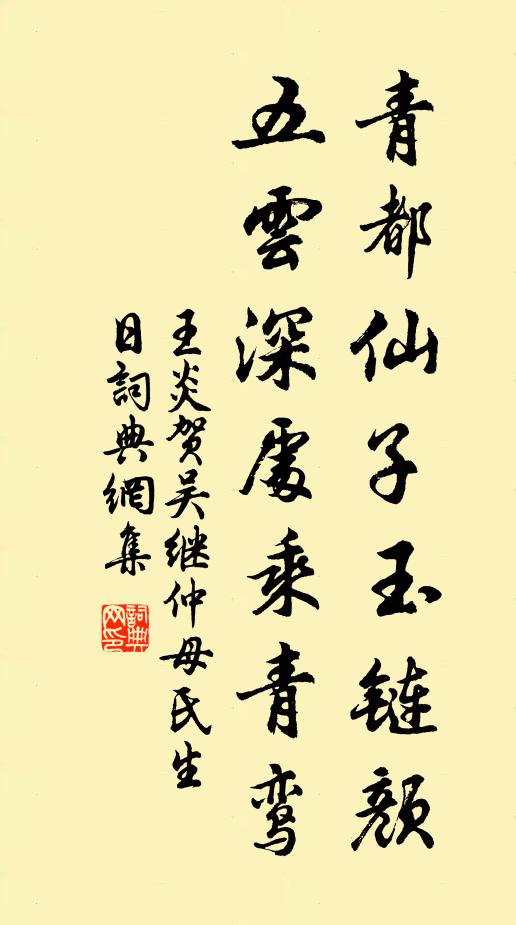 青都仙子玉鏈颜
五雲深處乘青鸾
王炎贺吴继仲母氏生
日詞典網集
詞典网印